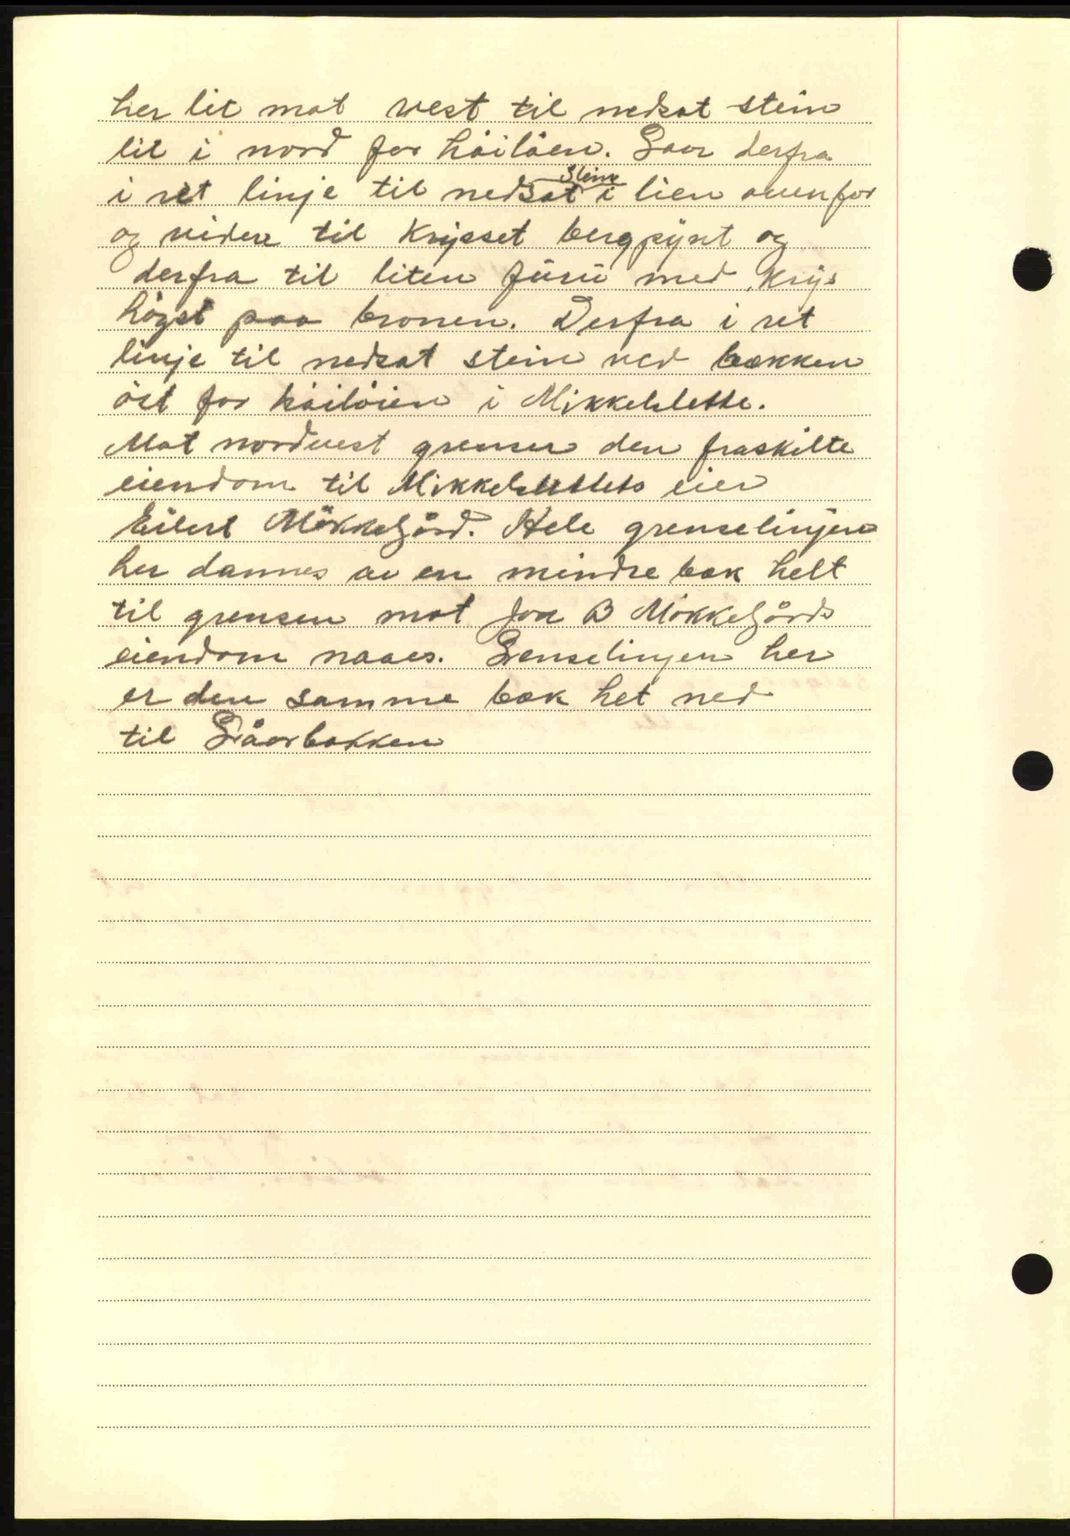 her lit mot vest til nedsat stein
lit i nord for høiløen. Gaar derfra
i ret linje til nedsat stein i lien ovenfor
og videre til krysset bergpynt og
derfra til liten furu med krys
høgst paa bronen. Derfra i ret
linje til nedsat stein ved bækken
öst for høilöien i Mikkelslette.
Mot nordvest grenser den fraskilte
eiendom til Mikkelslettets eier
Eilert Mökkelgård. Hele grenselinjen
her dannes av en mindre bæk helt
til grensen mot Joa B Mökkelgårds
eiendom naaes. Grenselinjen her
er den samme bæk het ned
til Gråorbakken